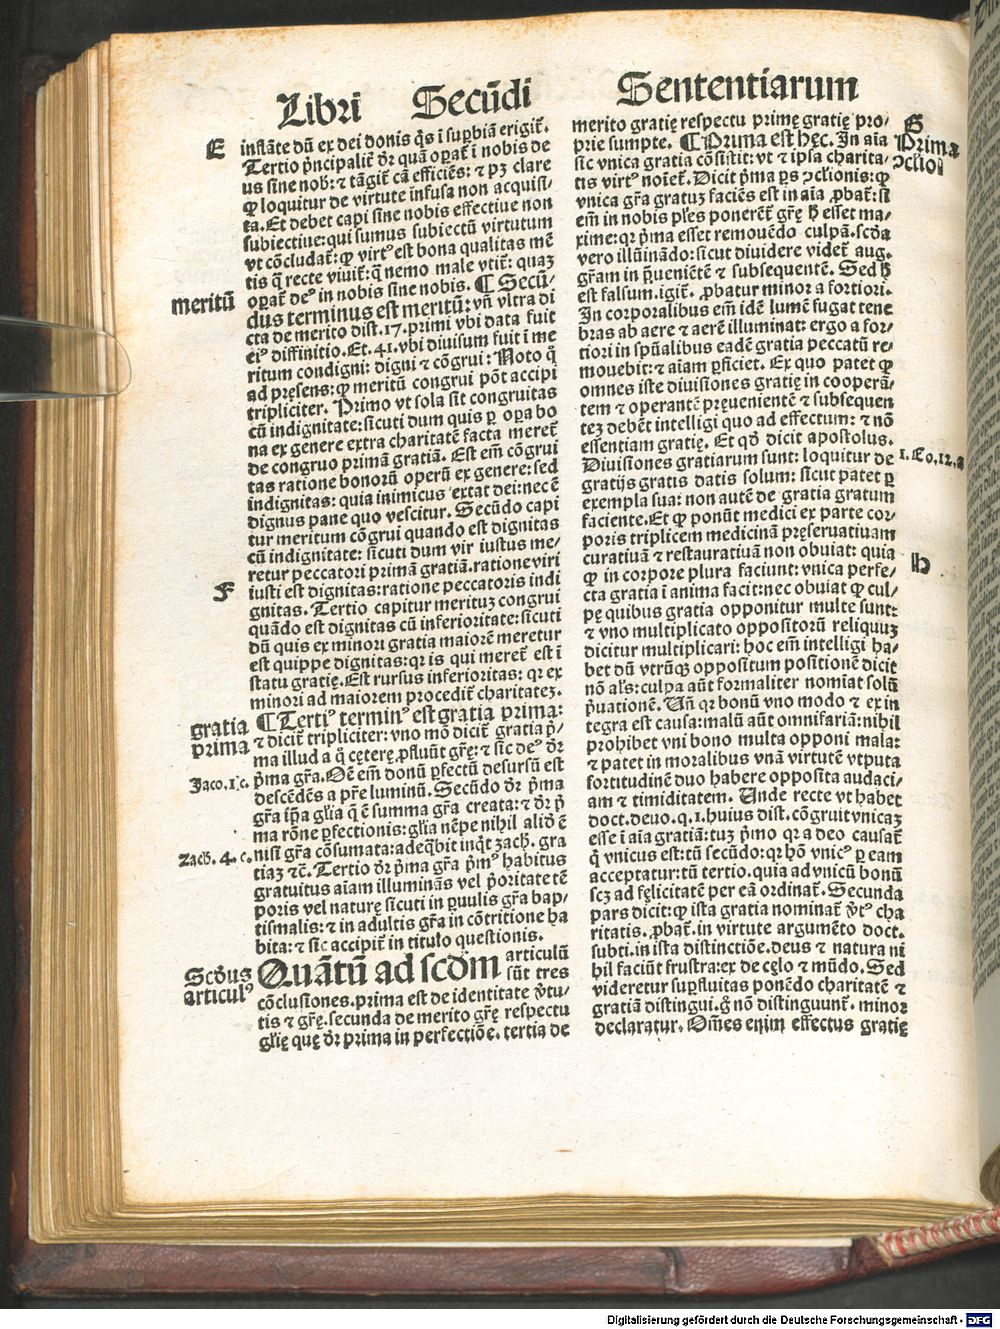 Libri Secūdi Sententiarum
E
inflāte dū ex dei donis q̄s ī supbiā erigit̄.
Tertio p̄ncipaliē d̄r quā opat̄ ī nobis de
us sine nob: ⁊ tāgit̄ cā efficiēs: ⁊ pꝫ clare
ꝙ loquitur de virtute infusa non acquisi/
ta. Et debet capi sine nobis effectiue non
subiectiue: qui sumus subiectū virtutum
vt cōcludat̄: ꝙ virtꝰ est bona qualitas mē
tis q̄ recte viuit̄: q̄ nemo male vtit̄: quaꝫ
opat̄ deꝰ in nobis sine nobis. ¶ Secū/
meritū
dus terminus est meritū: vn̄ vltra di
cta de merito dist. 17. primi vbi data fuit
eiꝰ diffinitio. Et. 41. vbi diuisum fuit ī me
ritum condigni: digni ⁊ cōgrui: Noto q̄
ad pręsens: ꝙ meritū congrui pōt accipi
tripliciter. Primo vt sola sit congruitas
cū indignitate: sicuti dum quis ꝑ opa bo
na ex genere extra charitatē facta meret̄
de congruo primā gratiā. Est em̄ cōgrui
tas ratione bonorū operū ex genere: sed
indignitas: quia inimicus extat dei: nec ē
dignus pane quo vescitur. Secūdo capi
tur meritum cōgrui quando est dignitas
cū indignitate: sicuti dum vir iustus me/
retur peccatori primā gratiā. ratione viri
F
iusti est dignitas: ratione peccatoris indi
gnitas. Tertio capitur merituꝫ congrui
quādo est dignitas cū inferioritate: sicuti
dū quis ex minori gratia maiorē meretur
est quippe dignitas: qr is qui meret̄ est ī
statu gratię. Est rursus inferioritas: qr ex
minori ad maiorem procedit̄ charitateꝫ.
gratia prima
¶ Tertiꝰ terminꝰ est gratia prima:
⁊ dicit̄ tripliciter: vno mō dicit̄ gratia p̄/
ma illud a q̄ cęterę ꝓfluūt gr̄ę: ⁊ sic deꝰ d̄r
Jaco. 1. c.
p̄ma gr̄a. Oē em̄ donū ꝑfectū desursū est
descēdēs a pr̄e luminū. Secūdo d̄r p̄ma
gr̄a ip̄a gl̄ia q̄ ē summa gr̄a creata: ⁊ d̄r p̄
ma rōne ꝑfectionis: gl̄ia nēpe nihil aliđ ē
Zach. 4. c.
nisi gr̄a cōsumata: adeq̄bit inq̄t zach. gra
tiaꝫ ⁊c̄. Tertio d̄r p̄ma gr̄a p̄mꝰ habitus
gratuitus aīam illuminās vel p̄oritate tē
poris vel naturę sicuti in ꝑuulis gr̄a bap/
tismalis: ⁊ in adultis gr̄a in cōtritione ha
bita: ⁊ sic accipit̄ in titulo quęstionis.
Scđus articulꝰ
Quātū ad scđm articulū
sūt tres
cōclusiones. prima est de identitate v̄tu/
tis ⁊ gr̄ę. secunda de merito gr̄ę respectu
gl̄ię quę d̄r prima in perfectiōe. tertia de
merito gratię respectu primę gratię pro/
G
prie sumpte. ¶ Prima est hęc. In aīa
Prima ↄclio
sic vnica gratia cōsistit: vt ⁊ ipsa charita/
tis virtꝰ noīet̄. Dicit p̄ma ꝑs ↄclionis: ꝙ
vnica gr̄a gratuꝫ faciēs est in aīa ꝓbat̄: si
em̄ in nobis pl̄es poneret̄ gr̄ę ħ esset ma/
xime: qr p̄ma esset remouēdo culpā. scđa
vero illūināđo: sicut diuidere videt̄ aug.
gr̄am in p̄ueniētē ⁊ subsequentē. Sed ħ
est falsum. igit̄. ꝓbatur minor a fortiori.
In corporalibus em̄ idē lumē fugat tene
bras ab aere ⁊ aerē illuminat: ergo a for/
tiori in spūalibus eadē gratia peccatū re/
mouebit: ⁊ aīam ꝑficiet. Ex quo patet ꝙ
omnes iste diuisiones gratię in cooperā/
tem ⁊ operantē pręuenientē ⁊ subsequen
teꝫ debēt intelligi quo ad effectum: ⁊ nō
essentiam gratię. Et qđ dicit apostolus.
1. Co. 12. a
Diuisiones gratiarum sunt: loquitur de
gratijs gratis datis solum: sicut patet ꝑ
exempla sua: non autē de gratia gratum
faciente. Et ꝙ ponūt medici ex parte cor/
poris triplicem medicinā pręseruatiuam
curatiuā ⁊ restauratiuā non obuiat: quia
h
ꝙ in corpore plura faciunt: vnica perfe/
cta gratia ī anima facit: nec obuiat ꝙ cul/
pę quibus gratia opponitur multe sunt:
⁊ vno multiplicato oppositorū reliquuꝫ
dicitur multiplicari: hoc em̄ intelligi ha/
bet dū vtrūqꝫ oppositum positionē dicit
nō al's: culpa aūt formaliter nomīat solū
p̄uationē. Un̄ qr bonū vno modo ⁊ ex in
tegra est causa: malū aūt omnifariā: nihil
prohibet vni bono multa opponi mala:
⁊ patet in moralibus vnā virtutē vtputa
fortitudinē duo habere opposita audaci/
am ⁊ timiditatem. Unde recte vt habet
doct. deuo. q. 1. huius dist. cōgruit vnicaꝫ
esse ī aīa gratiā: tuꝫ p̄mo qr a deo causat̄
q̄ vnicus est: tū secūdo: qr hō vnicꝰ ꝑ eam
acceptatur: tū tertio. quia ad vnicū bonū
scꝫ ad fęlicitatē per eā ordinat̄. Secunda
pars dicit: ꝙ ista gratia nominat̄ v̄tꝰ cha
ritatis. ꝓbat̄. in virtute argumēto doct.
subti. in ista distinctiōe. deus ⁊ natura ni
hil faciūt frustra: ex de cęlo ⁊ mūdo. Sed
videretur supfluitas ponēdo charitatē ⁊
gratiā distingui. g̊ nō distinguunt̄. minor
declaratur. Om̄es enim effectus gratię
Digitalisierung gefördert durch die Deutsche Forschungsgemeinschaft - DFG